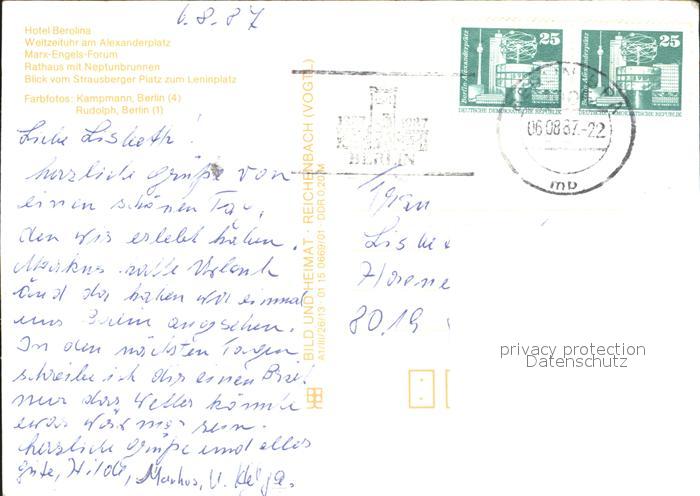 6.8.87
Hotel Berolina
Weltzeituhr am Alexanderplatz
Marx-Engels-Forum
Rathaus mit Neptunbrunnen
Blick vom Strausberger Platz zum Leninplatz
Farbfotos: Kampmann, Berlin (4)
Rudolph, Berlin (1)
Liebe Lisbeth!
herzliche grüße von
einen schönen Tag,
den wir erlebt haben.
Markus hatte Urlaub
und da haben wir einmal
uns Berlin angesehen.
In den nächsten Tagen
schreibe ich dir einen Brief
nur das Wetter könnte
etwas wärmer sein.
herzliche Grüße und alles
gute, Hilde, Markus, u. Helga.
BILD UND HEIMAT · REICHENBACH (VOGTL)
A1/III/26/13 01 15 0669/01 DDR 0,20 M
BERLIN
06.08.87.-22
mb
Berlin-Alexanderplatz
25
DEUTSCHE DEMOKRATISCHE REPUBLIK
Berlin-Alexanderplatz
25
DEUTSCHE DEMOKRATISCHE REPUBLIK
Frau
8019
privacy protection
Datenschutz